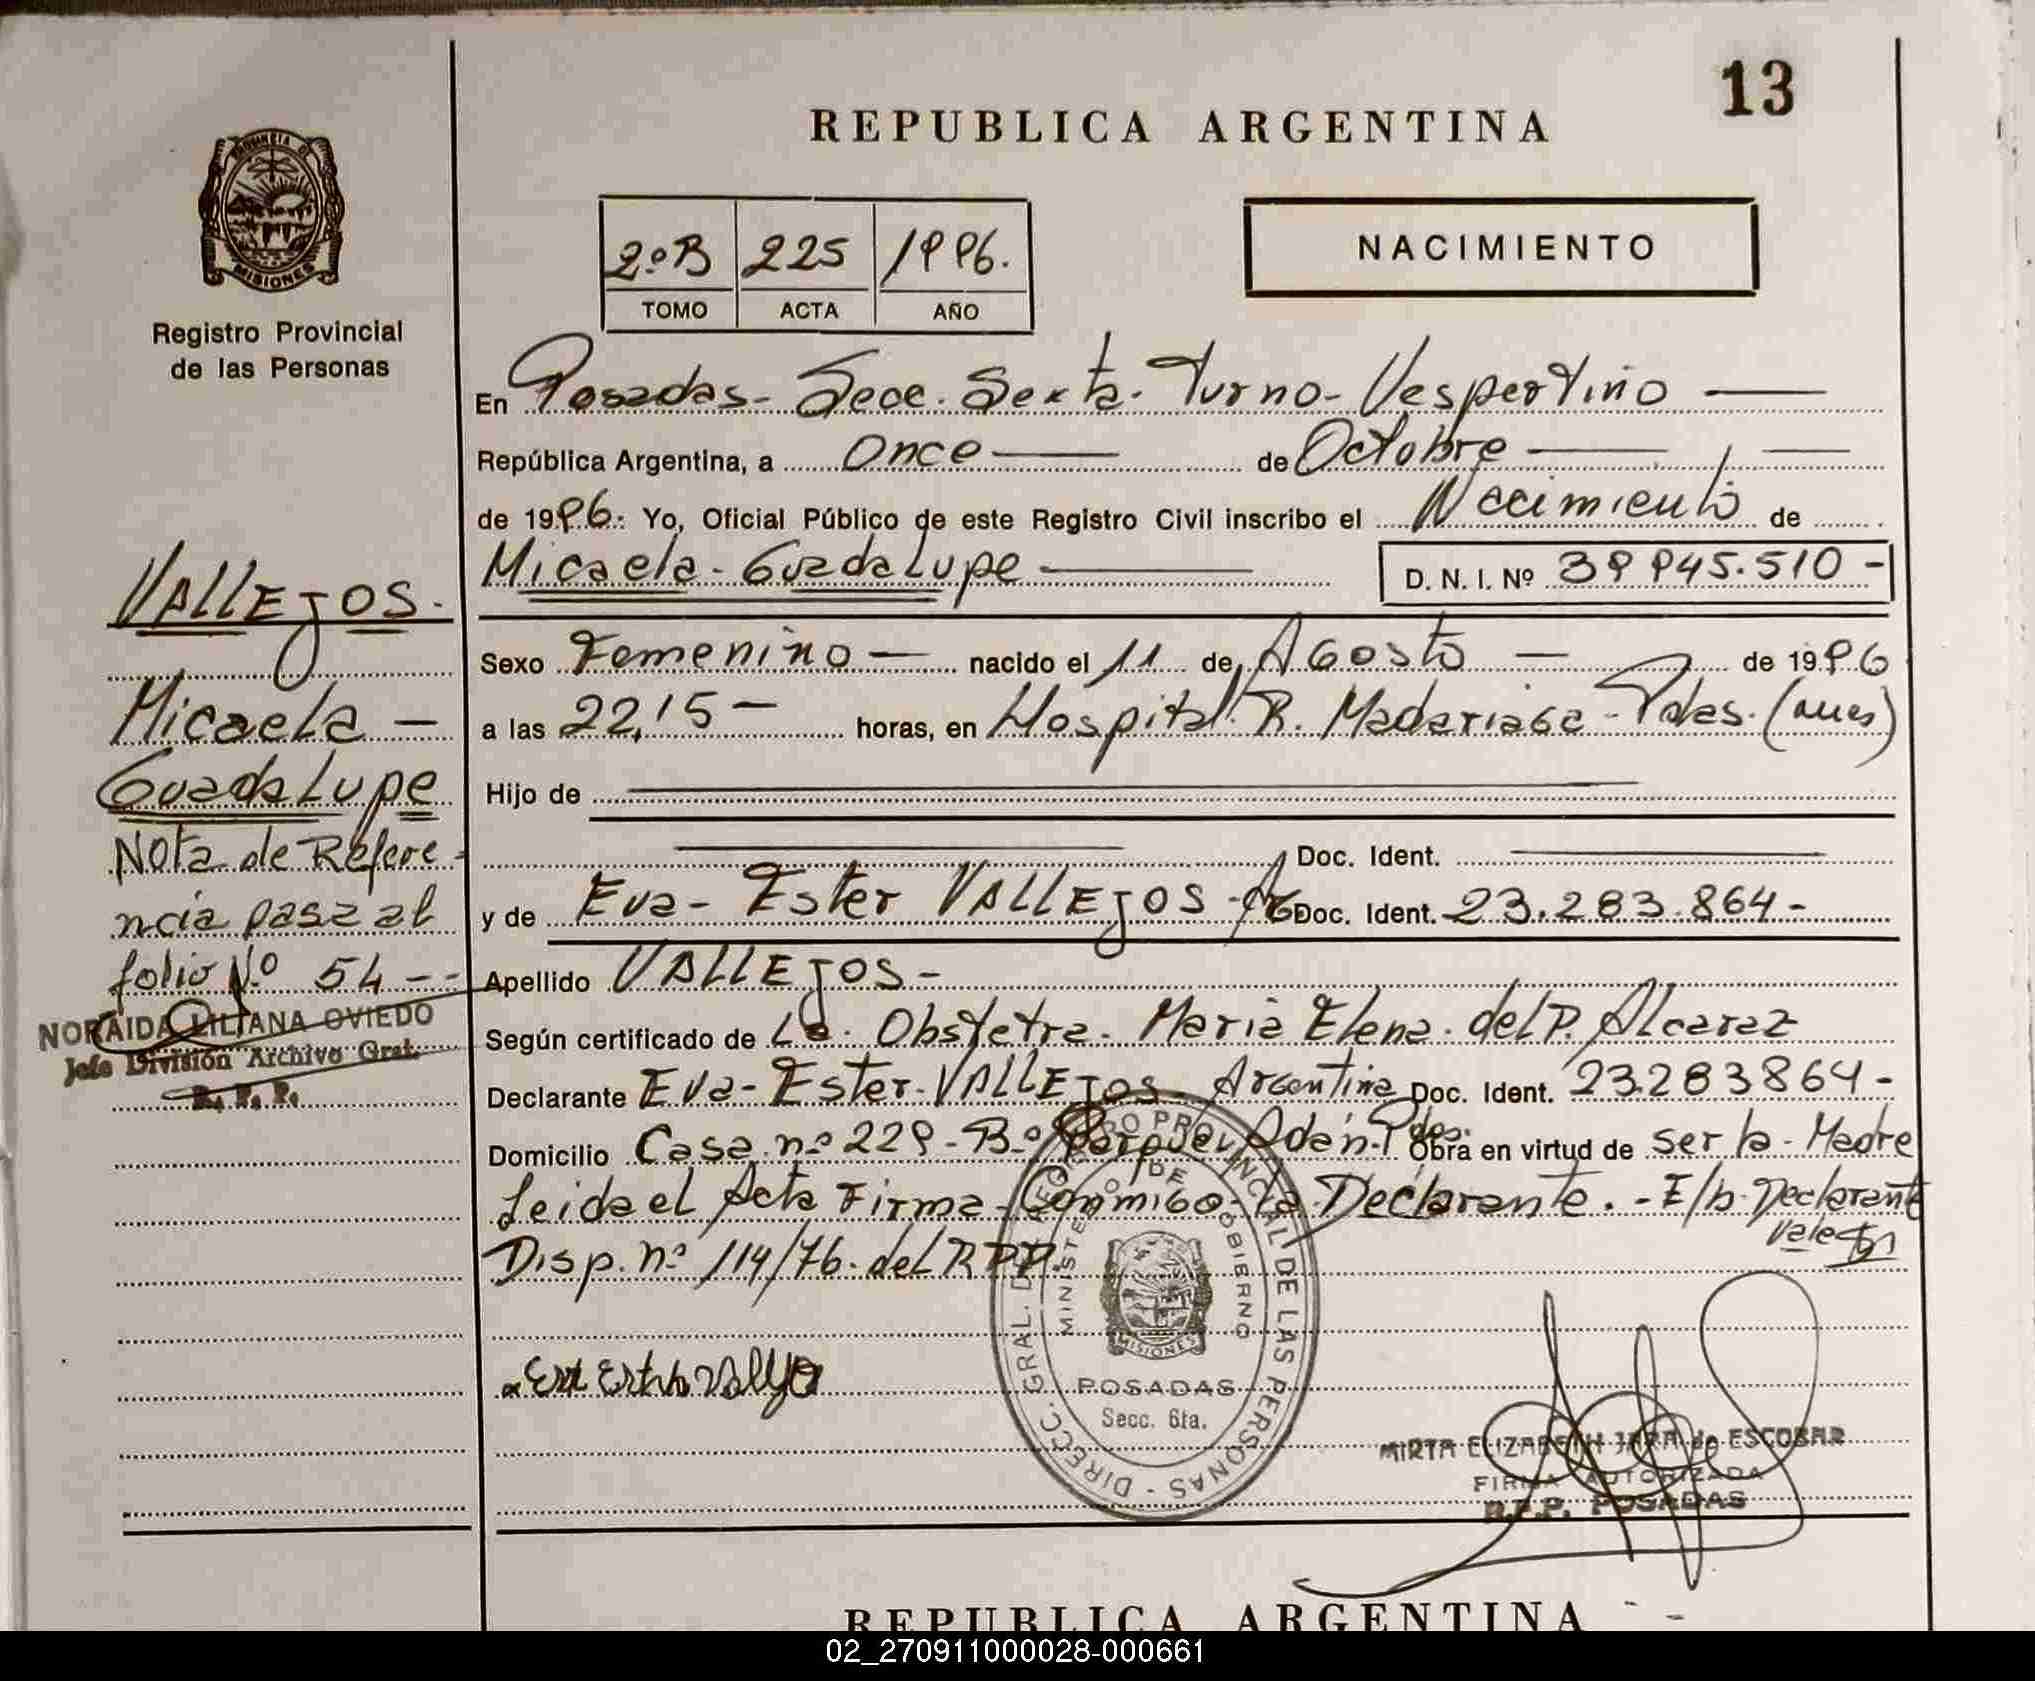 13
REPUBLICA ARGENTINA
PROVINCIA DE
MISIONES
Registro Provincial
de las Personas
2ºB 225 1996.
TOMO ACTA AÑO
NACIMIENTO
En Posadas- Secc. Sexta- Turno- Vespertino
República Argentina, a once de Octobre
de 1996. Yo, Oficial Público de este Registro Civil inscribo el Nacimiento de
Micaela- Guadalupe D. N. I. Nº 39 945.510-
Sexo Femenino- nacido el 11 de Agosto de 1996
a las 22,15- horas, en Hospital R. Madariaga- Pdas. (mnes)
Hijo de
Doc. Ident.
y de Eva- Ester VALLEJOS- Doc. Ident. 23.283.864-
Apellido VALLEJOS-
Según certificado de La Obstetra- Maria Elena- del P. Alcaraz
Declarante Eva- Ester- VALLEJOS- Argentina Doc. Ident. 23283864-
Domicilio Casa nº 229- Bº Adan- Pdas. Obra en virtud de ser la Madre
Leida el Acta Firma- Conmigo- la Declarante.- E/b. Declarante
Vale
Disp. nº 114/76. del RPP.
VALLEJOS-
Micaela-
Guadalupe
Nota de Refere-
ncia pasa al
folio Nº 54--
NORAIDA LILIANA OVIEDO
Jefe División Archivo Gral.
R. P. P.
DIRECC. GRAL. DEL REGISTRO PROVINCIAL DE LAS PERSONAS -
MINISTERIO DE GOBIERNO
MISIONES
POSADAS
Secc. 6ta.
MIRTA ELIZABETH JARA de ESCOBAR
FIRMA AUTORIZADA
R.P.P. POSADAS
REPUBLICA ARGENTINA
02_270911000028-000661